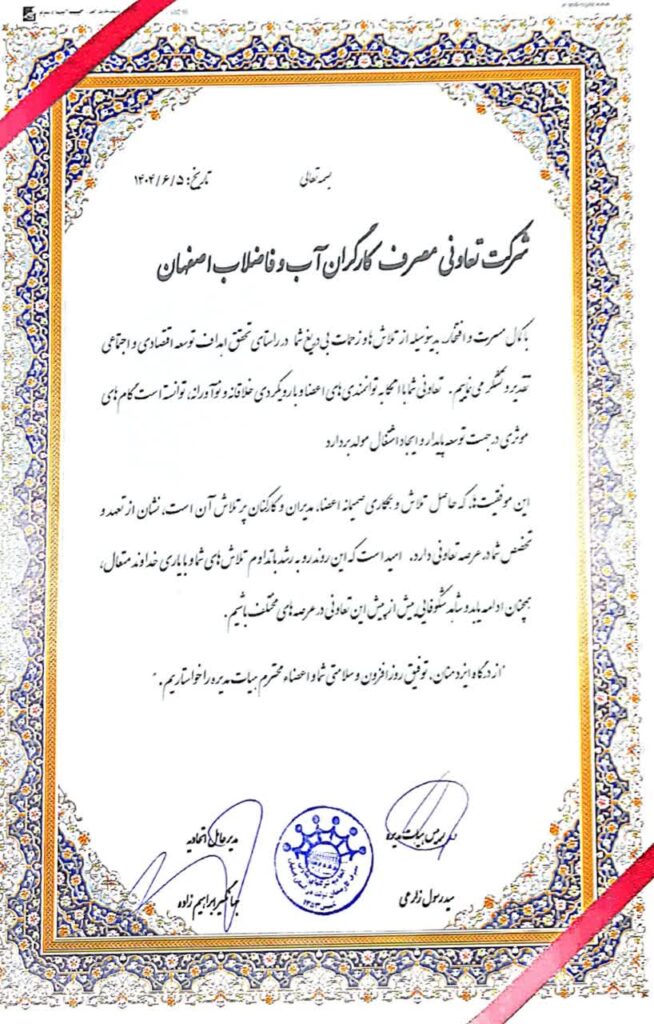 بسمه تعالی
تاریخ: ۱۴۰۴/۶/۵
شرکت تعاونی مصرف کارگران آب و فاضلاب اصفهان
با کمال مسرت و افتخار، بدینوسیله از تلاش ها و زحمات بی دریغ شما در راستای تحقق اهداف توسعه اقتصادی و اجتماعی
تقدیر و تشکر می نماییم. تعاونی شما با اتکا به توانمندی های اعضا و با رویکردی خلاقانه و نوآورانه، توانسته است گام های
موثری در جهت توسعه پایدار و ایجاد اشتغال مولد بردارد
این موفقیت ها، که حاصل تلاش و همکاری صمیمانه اعضا، مدیران و کارکنان پر تلاش آن است، نشان از تعهد و
تخصص شما در عرصه تعاونی دارد. امید است که این روند رو به رشد با تداوم تلاش های شما و با یاری خداوند متعال،
همچنان ادامه یابد و شاهد شکوفایی بیش از پیش این تعاونی در عرصه های مختلف باشیم.
"از درگاه ایزد منان، توفیق روز افزون و سلامتی شما و اعضاء محترم هیات مدیره را خواستاریم."
رییس هیات مدیره
مدیر عامل اتحادیه
سید رسول زارعی
جهانگیر ابراهیم زاده